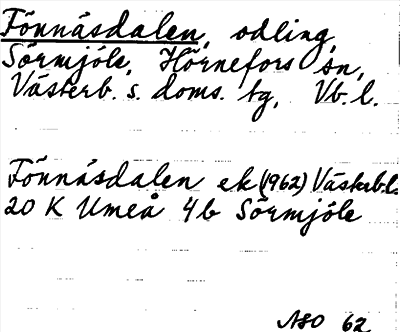 Fönnåsdalen, odling,
Sörmjöle, Hörnefors sn,
Västerb. s. doms. tg, Vb. l.
Fönnåsdalen ek (1962) Västerb.l.
20 K Umeå 4b Sörmjöle
NSO 62